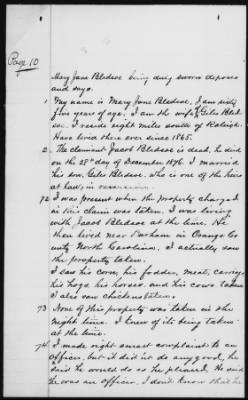 Page 10
Mary Jane Bledsoe being duly sworn deposes
and says.
1 My name is Mary Jane Bledsoe, I am sixty
five years of age. I am the wife of Giles Bled-
soe. I reside eight miles south of Raleigh.
Have lived there ever since 1865.
2. The claimant Jacob Bledsoe is dead, he died
on the 28th day of December 1876. I married
his son, Giles Bledsoe, who is one of the heirs
at law,
72 I was present when the property charged
in this claim was taken. I was living
with Jacob Bledsoe at the time. He
then lived near Durham in Orange Co
unty North Carolina. I actually saw
the property taken.
I saw his corn, his fodder, meat, carriage
his hogs, his horses, and his cows taken
I also saw chickens taken.
73 None of this property was taken in the
night time. I knew of its being taken
at the time.
74 I made right smart complaint to an
officer, but it did'nt do any good, he
said he would do as he pleased. He said
he was an officer, I don't know that he